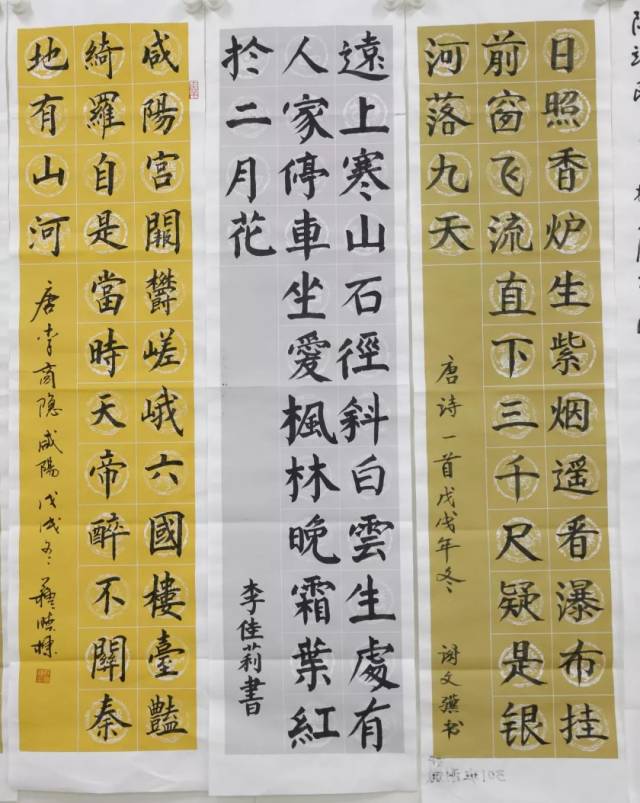 日照香炉生紫烟遥看瀑布挂
前窗飞流直下三千尺疑是银
河落九天
唐诗一首戊戌年冬
谢文骥书
遠上寒山石徑斜白雲生處有
人家停車坐愛楓林晚霜葉紅
於二月花
李佳莉書
咸陽宮闕鬱嵯峨六國樓臺豔
綺羅自是當時天帝醉不關秦
地有山河
唐李商隐咸陽戊戌冬